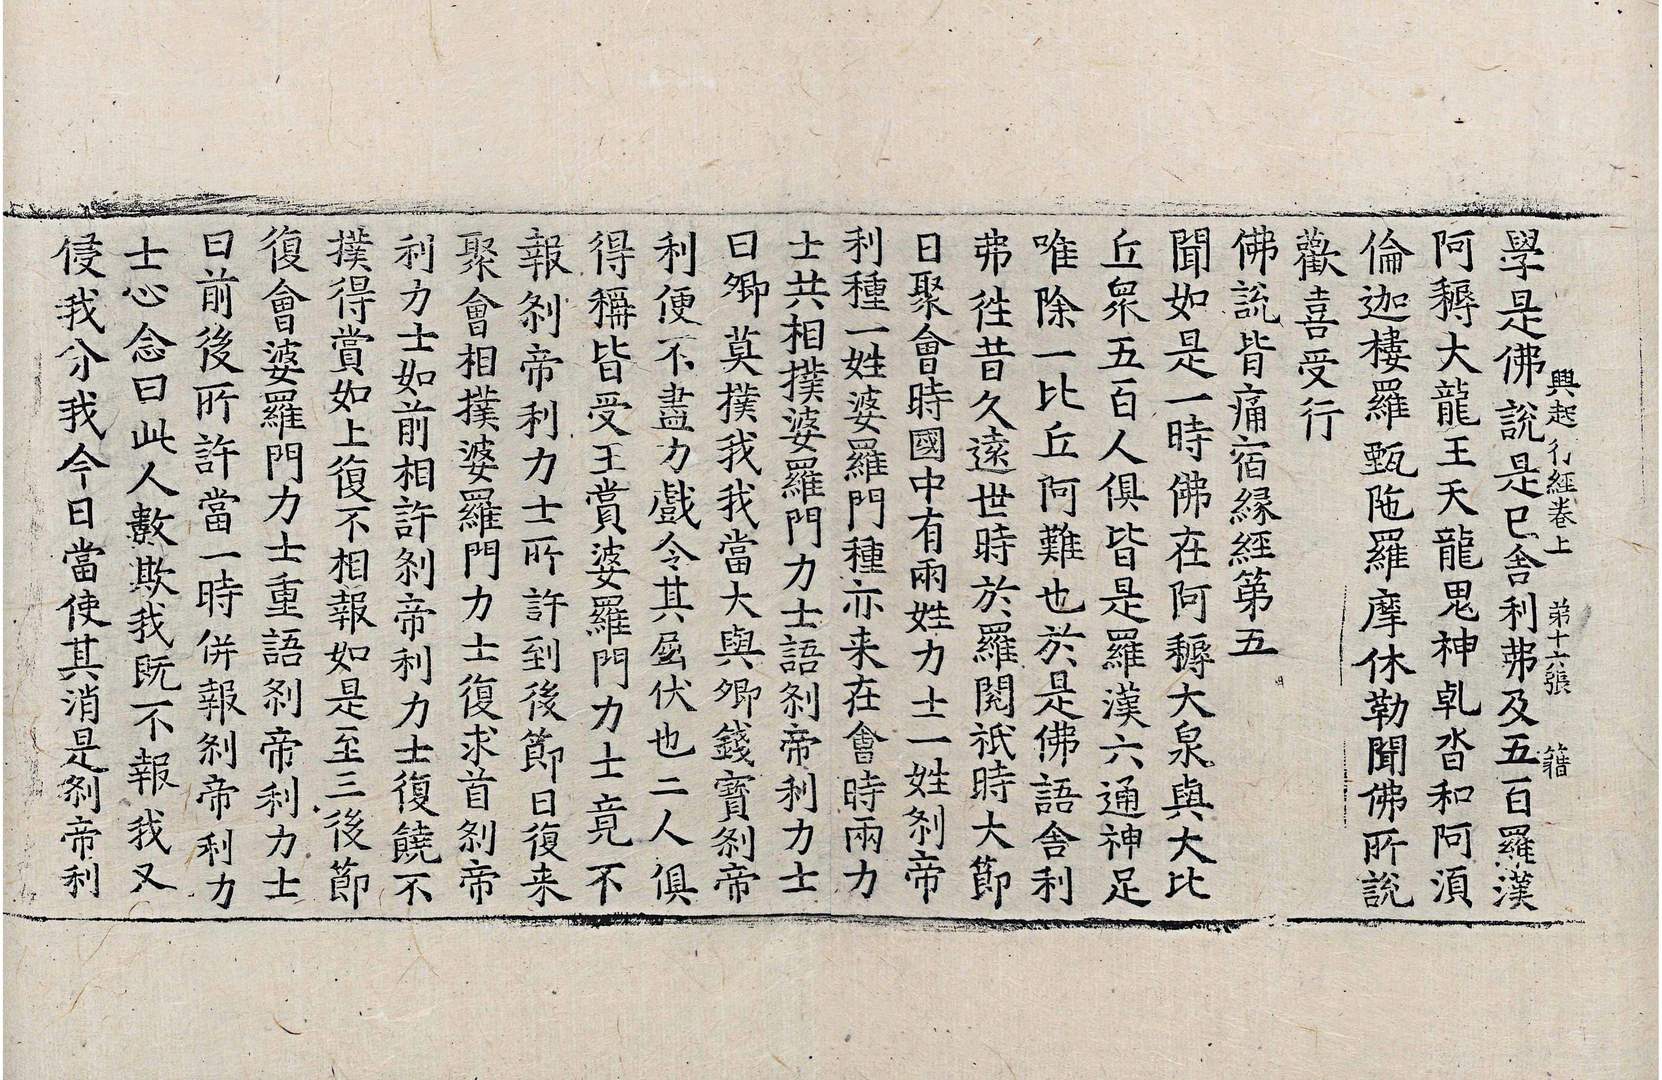 興起行經卷上　第十六張　籍
學是佛說是已舍利弗及五百羅漢
阿耨大龍王天龍鬼神乹沓和阿湏
倫迦樓羅甄陁羅摩休勒聞佛所說
歡喜受行
佛說背痛宿緣經第五
聞如是一時佛在阿耨大泉與大比
丘眾五百人俱皆是羅漢六通神足
唯除一比丘阿難也於是佛語舍利
弗徃昔久遠世時於羅閱祇時大節
日聚會時國中有兩姓力士一姓剎帝
利種一姓婆羅門種亦来在會時兩力
士共相撲婆羅門力士語剎帝利力士
曰卿莫撲我我當大與卿錢寶剎帝
利便不盡力戲令其屈伏也二人俱
得稱皆受王賞婆羅門力士竟不
報剎帝利力士所許到後節日復来
聚會相撲婆羅門力士復求首剎帝
利力士如前相許剎帝利力士復饒不
撲得賞如上復不相報如是至三後節
復會婆羅門力士重語剎帝利力士
曰前後所許當一時併報剎帝利力
士心念曰此人數欺我既不報我又
侵我分我今日當使其消是剎帝利